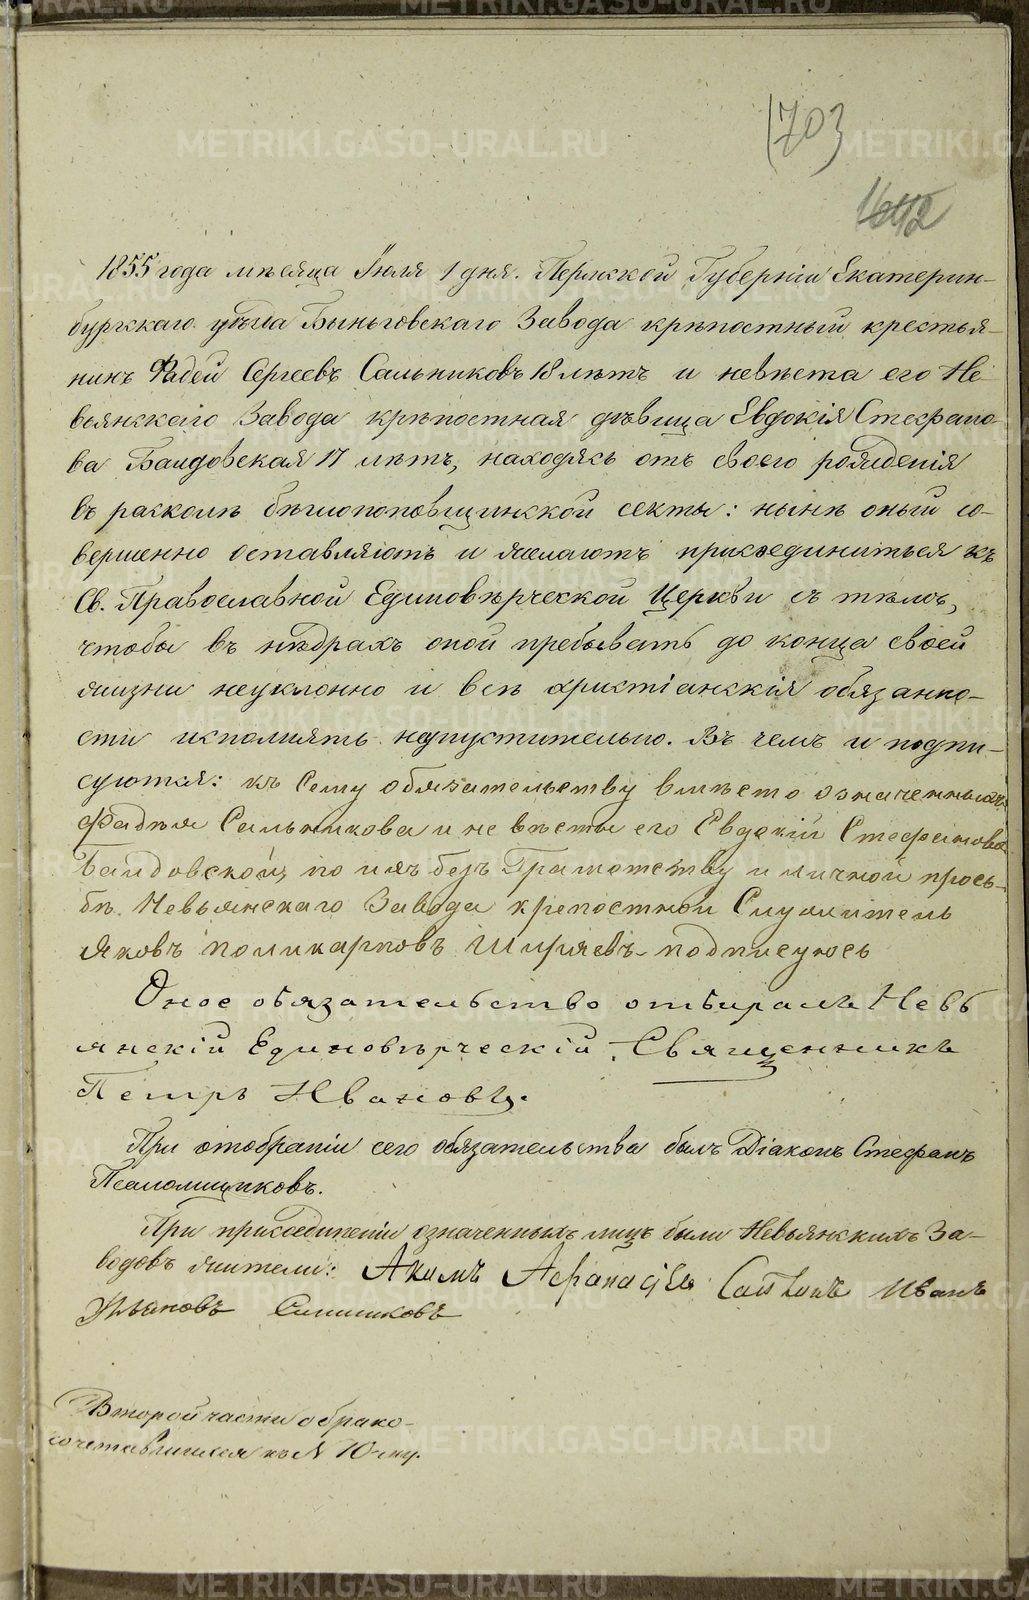 703
1642
1855 года мѣсяца Іюля 1 дня. Пермской Губерніи Екатерин-
бургскаго уѣзда Быньговскаго Завода крѣпостный крестья-
нинъ Фадей Сергеевъ Сальниковъ 18 лѣтъ и невѣста его Не-
вьянскаго Завода крѣпостная дѣвица Евдокія Стефано-
ва Баидовская 17 лѣтъ, находясь отъ своего рожденія
въ расколѣ бѣглопоповщинской секты: нынѣ оный со-
вершенно оставляютъ и желаютъ присоединиться къ
Св. Православной Единовѣрческой Церкви съ тѣмъ,
чтобы въ нѣдрахъ оной пребывать до конца своей
жизни неуклонно и всѣ христіанскія обязанно-
сти исполнять неупустительно. Въ чемъ и подпи-
суются: къ сему обязательству вмѣсто означенныхъ
Фадѣя Сальникова и не вѣсты его Евдокіи Стефановой
Баидовской, по ихъ безъ Грамотству и личной прось-
бѣ. Невьянскаго Завода крепостной Служитель
Яковъ Поликарповъ Ширяевъ подписуюсь
Оное обязательство отбиралъ Невь
янскій Единовѣрческій Священникъ
Петръ Ивановъ.
При отобраніи сего обязательства былъ Діаконъ Стефанъ
Псаломщиковъ.
При присоединеніи означенныхъ лицъ были Невьянскихъ За-
водовъ жители: Акимъ Афанасіев Иванъ
Ульяновъ
Второй части о брако-
сочетавшихся къ N 70-му.